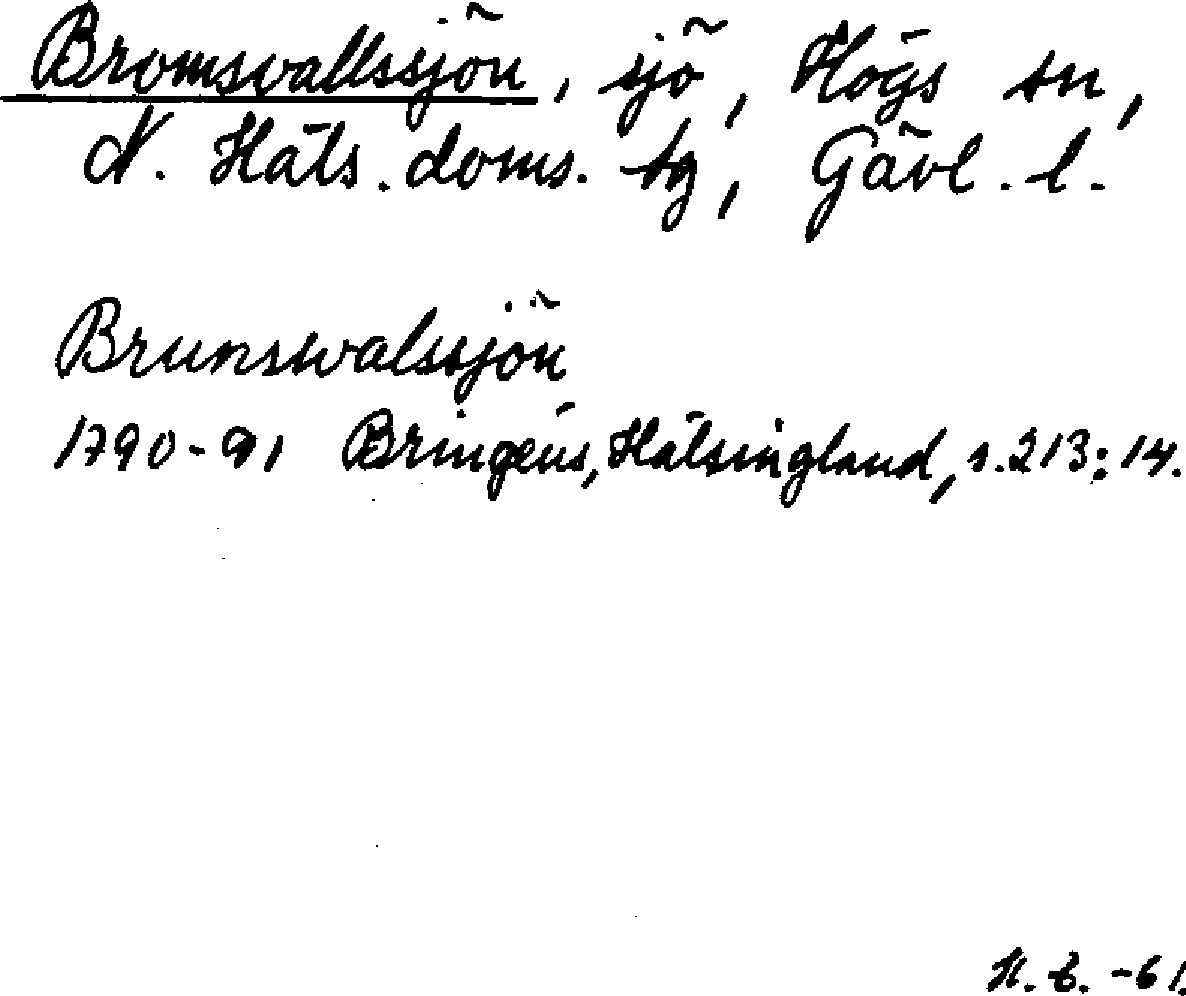 Bromsvallssjön, sjö, Högs sn,
N. Häls. doms. tg, Gävl. l.
Brunswalssjön
1790-91 Bringéus, Hälsingland, s. 213:14.
H. B. -61.